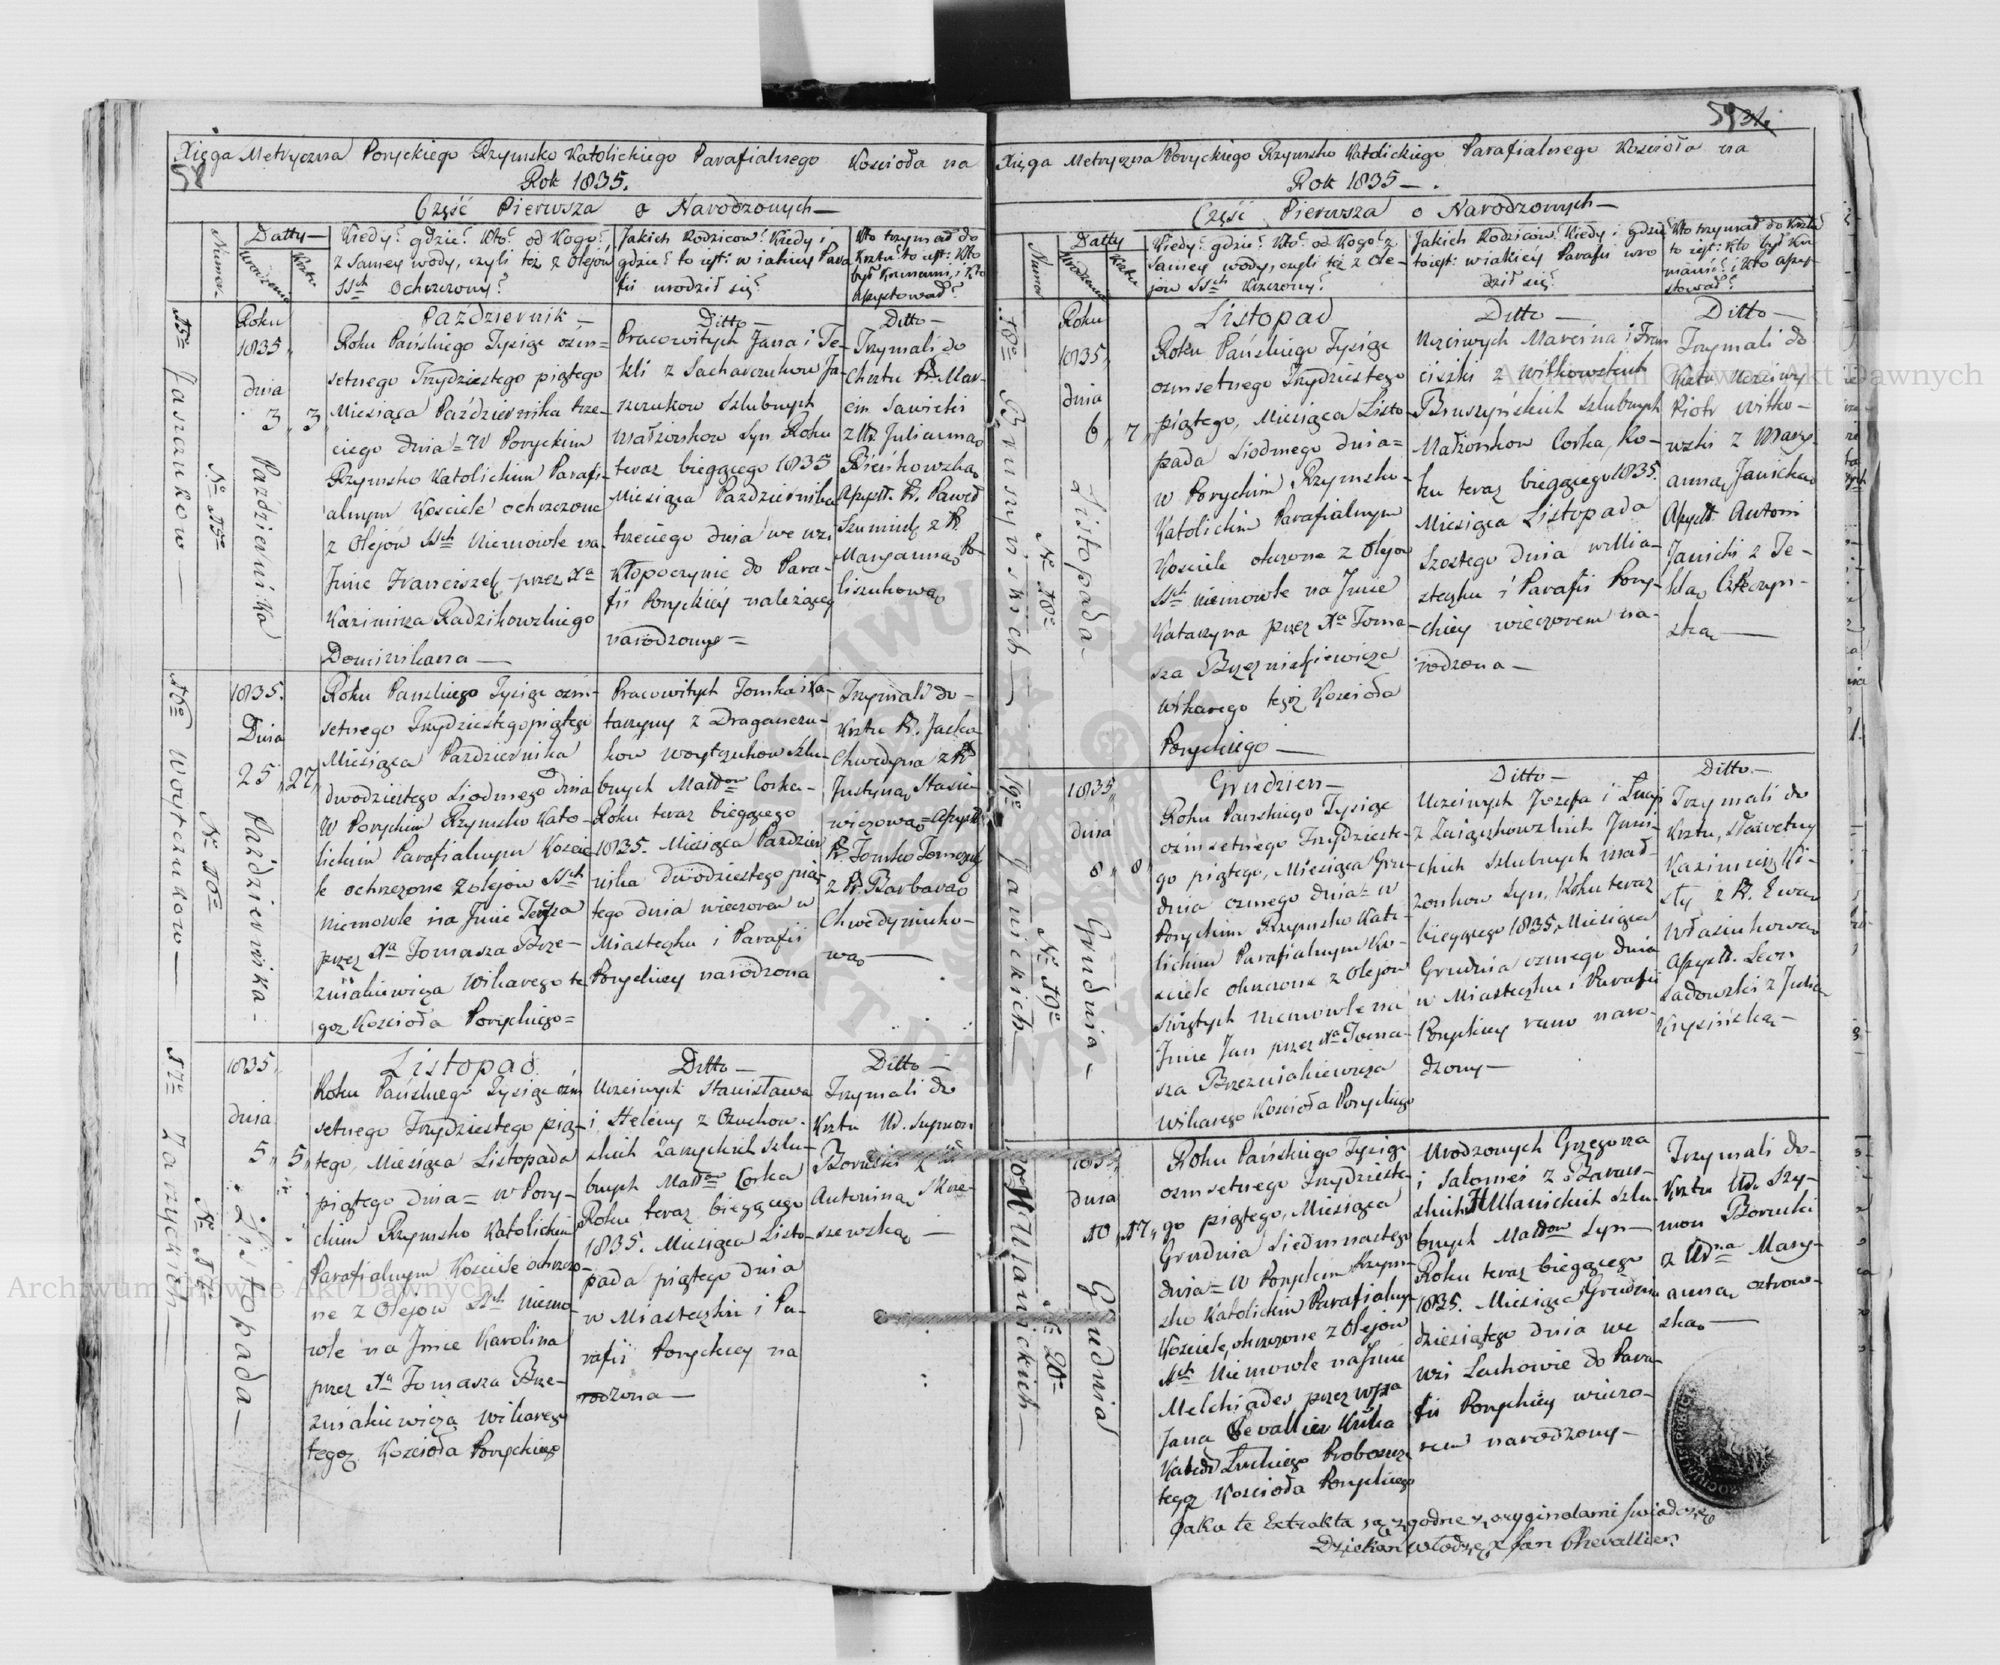 Xięga Metryczna Poryckiego Rzymsko Katolickiego Parafialnego Kościoła na
58
Rok 1835.
Część Pierwsza o Narodzonych—
Numer
Datty—
Urodzenia
Krztu
Kiedy? gdzie? Kto? od Kogo?
z samey wody, czyli też z Olejów
SSch Ochrzczony?
Jakich Rodziców? Kiedy i
gdzie? to iest: w iakiey Para
fii urodził się?
Kto trzymał do
Krztu? to iest: Kto
był Kumami, i Kto
Assystował?
15o Jaszczuków—
No 15o
Roku
1835
dnia
3 „ 3 „
Października
Październik—
Roku Pańskiego Tysiąc ośm-
setnego Trzydziestego piątego
Miesiąca Października trze-
ciego dnia = W Poryckim
Rzymsko Katolickim Parafi-
alnym Kościele ochrzczone
z Olejów SSch Niemowle na
Imie Franciszek, przez Xa
Kazimirza Radzikowskiego
Dominikana—
Ditto—
Pracowitych Jana i Te-
kli z Sacharczuków Ja-
szczuków szlubnych
Małżonków Syn Roku
teraz bieżącego 1835
Miesiąca Października
trzeciego dnia we wsi
Kłopoczynie do Para-
fii Poryckiéy należącey
narodzony=
Ditto—
Trzymali do
Chrztu Pr. Mar-
cin Sawicki
z Ur Julianną
Bieńkowską
Assyst. Pr. Paweł
z Pr
Maryanną Po-
liszukową
16o Woytczuków—
No 16o
1835.
Dnia
25 „ 27 „
Października—
Roku Pańskiego Tysiąc ośm-
setnego Trzydziestego piątego
Miesiąca Października
dwodziestego Siódmego dnia
W Poryckim Rzymsko Kato-
lickim Parafialnym Koście-
le ochrzczone z Olejów SSch
Niemowle na Imie Teressa
przez Xa Tomasza Brze-
źniakiewicza Wikarego te
goż Kościoła Poryckiego=
Pracowitych Tomka i Ka-
tarzyny z Draganczu-
ków Woytczuków szlu-
bnych Małżow Corka—
Roku teraz bieżącego
1835. Miesiąca Paździer
nika dwódziestego pią-
tego dnia wieczorem w
Miasteczku i Parafii
Poryckiey narodzona
Trzymali do—
Krztu Pr. Jacko
Chwedyna z Pr
Justyną Stasie-
wiczową= Assyst
Pr. Tomko
z Pr. Barbarą
Chwedyniuko-
wą—
17o Zarzyckich—
No 17o
1835.
dnia
5 „ 5 „
Listopada—
Listopad.
Roku Pańskiego Tysiąc ośm
setnego Trzydziestego pią-
tego, Miesiąca Listopada
piątego dnia = w Pory-
ckim Rzymsko Katolickim
Parafialnym Kościele ochrzczo-
ne z Olejów SSch Niemo-
wle na Imie Karolina
przez Xa Tomasza Brze-
źniakiewicza Wikarego
tegoż Kościoła Poryckiego
Ditto—
Uczciwych Stanisława
i Heleny z Czuchow-
skich Zarzyckich szlu-
bnych Małżow Corka
Roku teraz bieżącego
1835. Miesiąca Listo-
pada piątego dnia
w Miasteczku i Pa-
rafii Poryckiey na
rodzona—
Ditto—
Trzymali do
Krztu Ur. Szymon
Borucki z Ur
Antoniną Skrze-
szewską—
59
Xięga Metryczna Poryckiego Rzymsko Katolickiego Parafialnego Kościoła na
Rok 1835—.
Część Pierwsza o Narodzonych—
Numer
Datty
Urodzenia
Krztu
Kiedy? gdzie? Kto? od Kogo? z
samey wody, czyli też z Ole-
jów SSch Krzczony?
Jakich Rodziców? Kiedy i gdzie
to iest: w iakiey Parafii uro
dził się?
Kto trzymał do Krztu
to iest: Kto był Ku
mami? i Kto Assy-
stował?
18o Bruszyńskich—
No 18o
Roku
1835 „
dnia
6 „ 7 „
Listopada
Listopad
Roku Pańskiego Tysiąc
ośmsetnego Trzydziestego
piątego, Miesiąca Listo-
pada Siódmego dnia=
w Poryckim Rzymsko-
Katolickim Parafialnym
Kościele ochrzczone z Olejów
SSch niemowle na Imie
Katarzyna przez Xa Toma-
sza Brzeźniakiewicza
Wikarego tegoż Kościoła
Poryckiego—
Ditto—
Uczciwych Marcina i Fran
ciszki z Witkowskich
Bruszyńskich szlubnych
Małżonków Corka, Ro-
ku teraz bieżącego 1835.
Miesiąca Listopada
Szostego dnia w Mia-
steczku i Parafii Pory-
ckiey wieczorem na-
rodzona—
Ditto—
Trzymali do
Krztu Uczciwy
Piotr Witko-
wski z Mary-
anną Janicką
Assyst. Antoni
Janicki z Te-
klą
ską—
19o Janickich—
No 19o
1835 „
dnia
8 „ 8 „
Grudnia—
Grudzień—
Roku Pańskiego Tysiąc
ośmsetnego Trzydzieste-
go piątego, Miesiąca Gru-
dnia osmego dnia= w
Poryckim Rzymsko Kato-
lickim Parafialnym Ko-
ściele ochrzczone z Olejów
Świętych Niemowle na
Imie Jan przez Xa Toma-
sza Brzeźniakiewicza
Wikarego Kościoła Poryckiego
Ditto—
Uczciwych Józefa i Łucyi
z Związkowskich Jani-
ckich szlubnych mał-
żonków Syn, Roku teraz
bieżącego 1835, Miesiąca
Grudnia osmego dnia
w Miasteczku i Parafii
Poryckiey rano naro-
dzony—
Ditto—
Trzymali do
Krztu, Sławetny
Kazimierz Ki-
sły z Pr. Ewą
Własiukową
Assyst. Leon
Sadowski z Julią
Krysińską—
20o W Ulanickich—
No 20o
1835 „
dnia
10 „ 17 „
Grudnia
Roku Pańskiego Tysiąc
ośmsetnego Trzydzieste-
go piątego, Miesiąca
Grudnia Siedmnastego
dnia= W Poryckim Rzym-
sko Katolickim Parafialnym
Kościele, ochrzczone z Olejów
SSch Niemowle na Imie
Melchiades przez WJXa
Jana Chevallier Knka
Kated. Łuckiego Proboszcza
tegoż Kościoła Poryckiego
Urodzonych Grzegorza
i Salomei z Baraw-
skich W Ulanickich szlu-
bnych Małżow Syn—
Roku teraz bieżącego
1835. Miesiąca Grudnia
dziesiątego dnia we
wsi Lachowie do Para-
fii Poryckiéy wieczo-
rem narodzony—
Trzymali do-
Krztu Ur. Szy-
mon Borucki
z Urną Mary-
anną Ostrow-
ską—
Jako te Extrakta są zgodne z oryginałami świadczę
Dziekan Włodz. X Jan Chevallier.
Archiwum Główne Akt Dawnych
Archiwum Główne Akt Dawnych